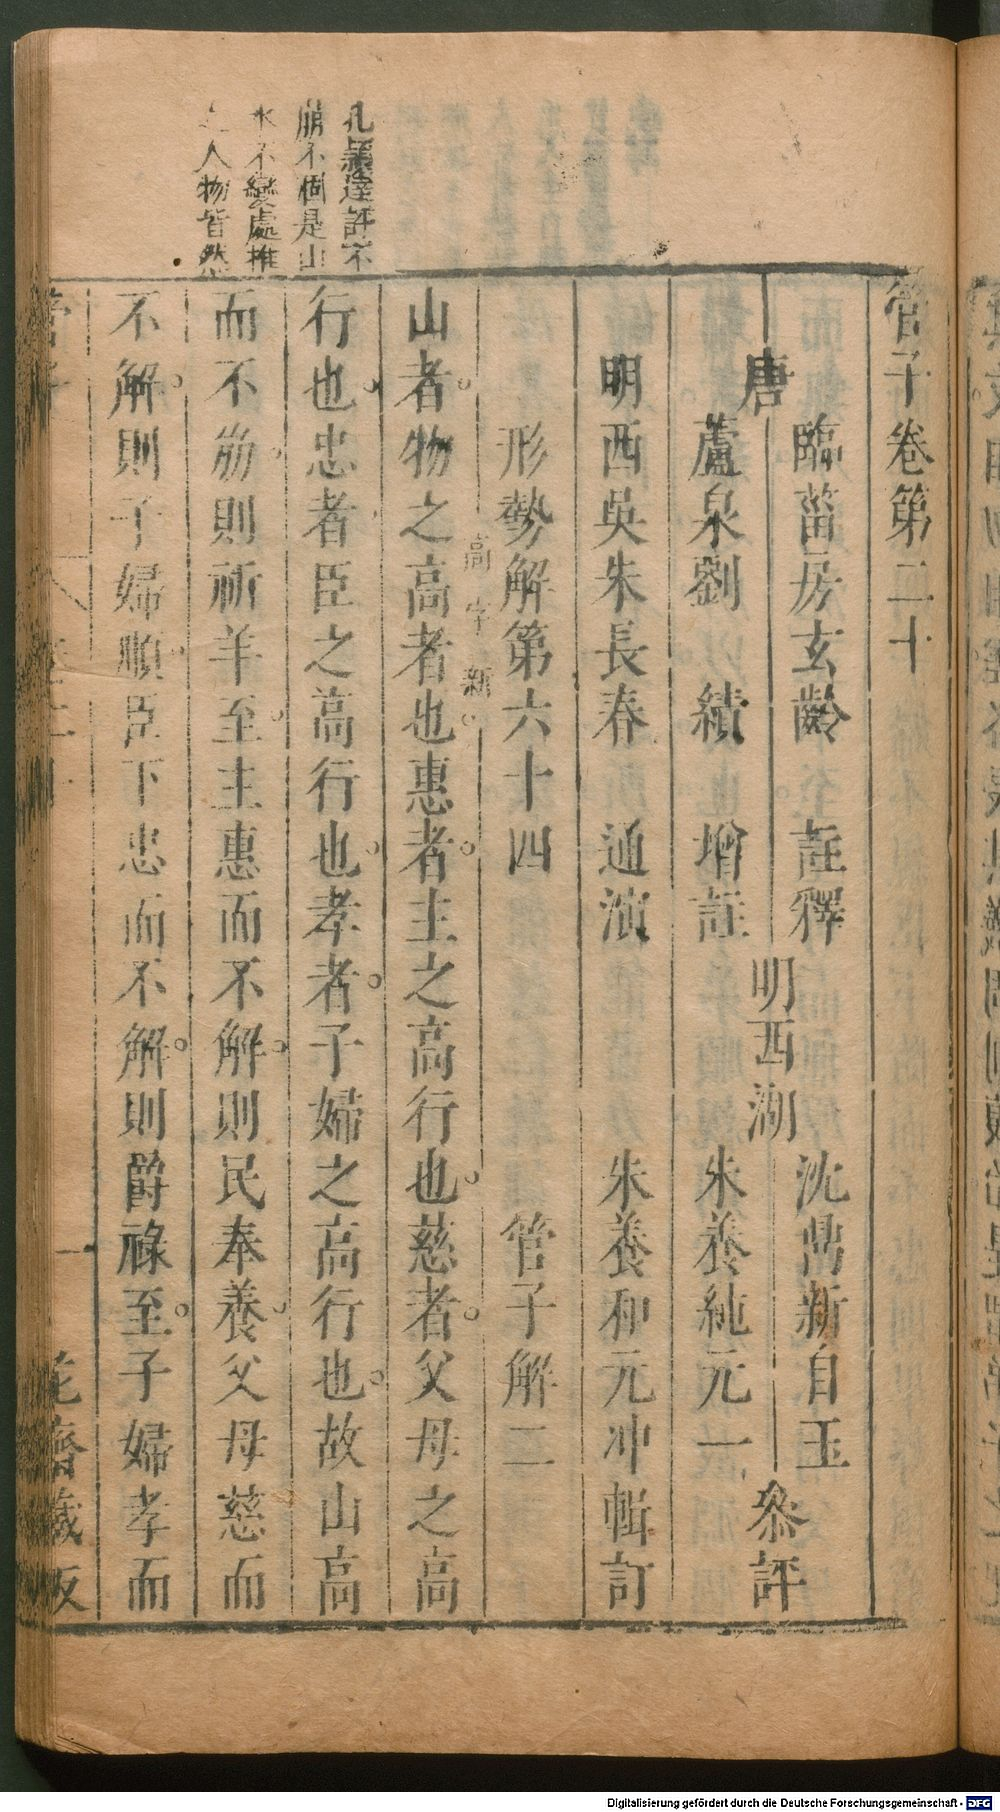 管子卷第二十
唐
臨菑房玄齡註釋
蘆泉劉績增註
明西湖
沈鼎新自玉
朱養純元一
叅評
明西吳朱長春通演
朱養和元冲輯訂
形勢解第六十四
管子解二
山者物之高者也惠者主之高行也慈者父母之高
行也忠者臣之高行也孝者子婦之高行也故山高
而不崩則祈羊至主惠而不解則民奉養父母慈而
不解則子婦順臣下忠而不解則爵祿至子婦孝而
孔穎達評不
崩不涸是山
水不變處推
之人物皆然
管子
一
花齋藏板
Digitalisierung gefördert durch die Deutsche Forschungsgemeinschaft - DFG